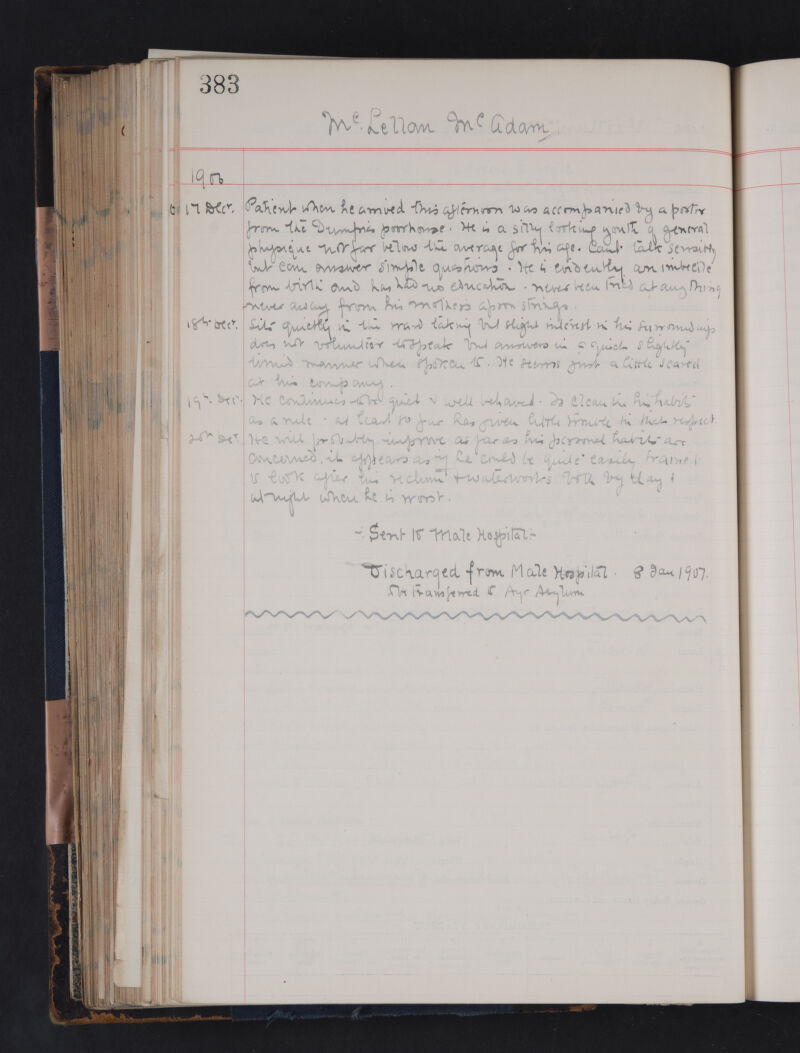 383
Mc Lellan McAdam
1906
17 Decr. Patient when he arrived this afternoon was accompanied by a porter
from the Dumfries poorhouse. He is a silly looking youth of general
physique not far below the average for his age. Cant talk sensibly
but can answer simple questions. He is evidently an imbecile
from birth and has had no education - never been tried at any thing
never away from his mothers apron strings.
18th Decr. Sits quietly in the ward taking but slight interest in his surroundings
does not volunteer to speak but answers in a quick slightly
timid manner when spoken to. He seems just a little scared
at his company.
19th Decr. He continues to be quiet & well behaved. Is clean in his habits
as a rule - at least so far has given little trouble in that respect
20th Decr. He will probably improve as far as his personal habits are
concerned, it appears as if he could be quite easily trained
to look after his rectum & waterworks both by day &
at night when he is worst.
- Sent to Male Hospital -
Discharged from Male Hospital. 8 Jan 1907.
to be transferred to Ayr Asylum